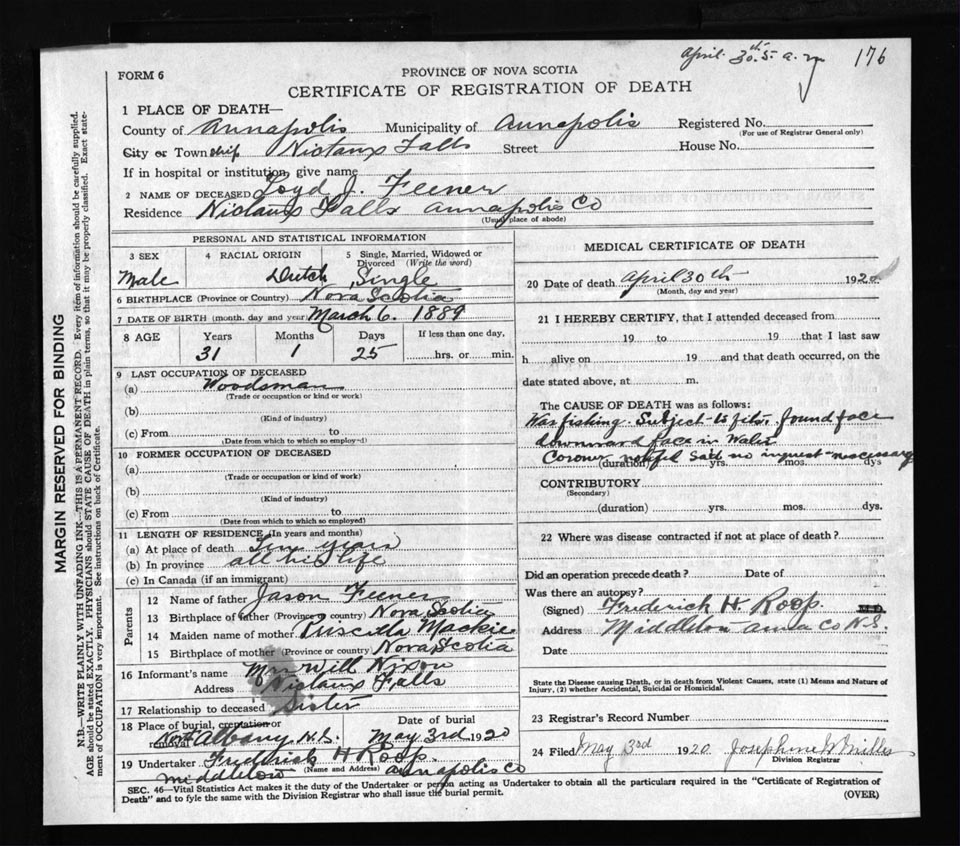 April. 30th. 5. a. m 176
FORM 6
PROVINCE OF NOVA SCOTIA
CERTIFICATE OF REGISTRATION OF DEATH
1 PLACE OF DEATH—
County of Annapolis Municipality of Annapolis Registered No.
(For use of Registrar General only)
City or Town ship Nictaux Falls Street House No.
If in hospital or institution, give name
2 NAME OF DECEASED Loyd J. Feener
Residence Nictaux Falls Annapolis Co
(Usual place of abode)
PERSONAL AND STATISTICAL INFORMATION
3 SEX 4 RACIAL ORIGIN 5 Single, Married, Widowed or Divorced (Write the word)
Male Dutch Single
6 BIRTHPLACE (Province or Country) Nova Scotia
7 DATE OF BIRTH (month, day and year) March 6. 1889
8 AGE Years Months Days If less than one day,
31 1 25 hrs. or min.
9 LAST OCCUPATION OF DECEASED
(a) Woodsman
(Trade or occupation or kind or work)
(b)
(Kind of industry)
(c) From to
(Date from which to which so employed)
10 FORMER OCCUPATION OF DECEASED
(a)
(Trade or occupation or kind of work)
(b)
(Kind of industry)
(c) From to
(Date from which to which so employed)
11 LENGTH OF RESIDENCE (In years and months)
(a) At place of death years
(b) In province all his life
(c) In Canada (if an immigrant)
Parents
12 Name of father Jason Feener
13 Birthplace of father (Province or country) Nova Scotia
14 Maiden name of mother Priscilla Mackie
15 Birthplace of mother (Province or country) Nova Scotia
16 Informant's name Mrs Will Nixon
Address Nictaux Falls
17 Relationship to deceased Sister
18 Place of burial, cremation or removal Albany N.S. Date of burial May 3rd 1920
19 Undertaker Frederick H Roop.
(Name and Address)
Middleton Annapolis Co
MEDICAL CERTIFICATE OF DEATH
20 Date of death April 30th 1920
(Month, day and year)
21 I HEREBY CERTIFY, that I attended deceased from
19 to 19 that I last saw
h alive on 19 and that death occurred, on the
date stated above, at m.
The CAUSE OF DEATH was as follows:
Was fishing. Subject to fits, found face
downward face in Water
Coroner notified said no inquest necessary
(duration) yrs. mos. dys
CONTRIBUTORY
(Secondary)
(duration) yrs. mos. dys.
22 Where was disease contracted if not at place of death?
Did an operation precede death? Date of
Was there an autopsy?
(Signed) Frederick H. Roop. M.D.
Address Middleton Anna Co N.S.
Date
State the Disease causing Death, or in death from Violent Causes, state (1) Means and Nature of
Injury, (2) whether Accidental, Suicidal or Homicidal.
23 Registrar's Record Number
24 Filed May 3rd 1920 Josephine
Division Registrar
SEC. 46—Vital Statistics Act makes it the duty of the Undertaker or person acting as Undertaker to obtain all the particulars required in the "Certificate of Registration of
Death" and to fyle the same with the Division Registrar who shall issue the burial permit.
(OVER)
MARGIN RESERVED FOR BINDING
N.B.—WRITE PLAINLY WITH UNFADING INK—THIS IS A PERMANENT RECORD. Every item of information should be carefully supplied.
AGE should be stated EXACTLY. PHYSICIANS should STATE CAUSE OF DEATH in plain terms, so that it may be properly classified. Exact state-
ment of OCCUPATION is very important. See instructions on back of Certificate.